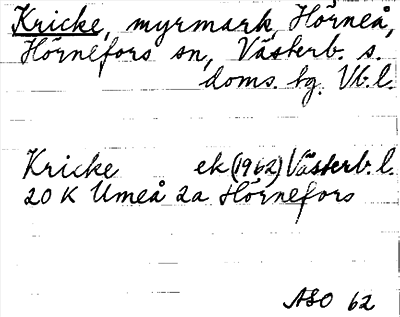 Kricke, myrmark, Hörneå,
Hörnefors sn, Västerb. s.
doms. tg. Vb. l.
Kricke ek (1962) Västerb. l.
20 K Umeå 2a Hörnefors
ASO 62